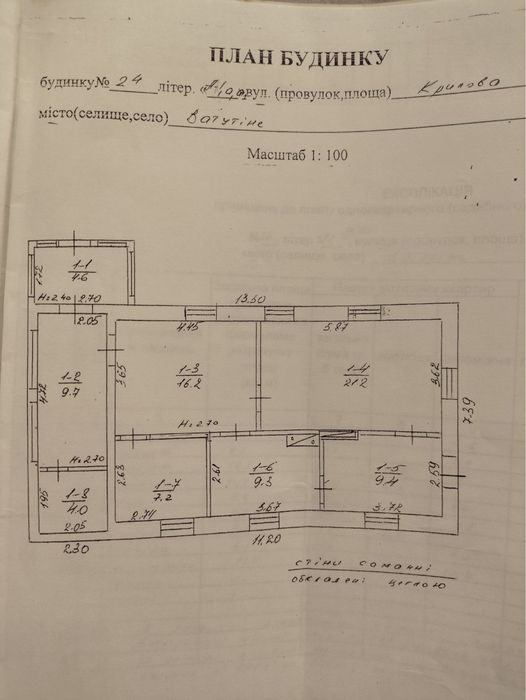 ПЛАН БУДИНКУ
будинку№ 24 літер. вул. (провулок,площа) Крилова
місто(селище,село) Ватутіне
Масштаб 1: 100
1-1
4.6
1.72
H=2.40 2.70
13.50
2.05
4.45
5.87
1-2
9.7
4.72
3.65
1-3
16.2
1-4
21.2
3.62
7.39
H=2.70
H=2.70
1-8
4.0
1.95
2.05
2.63
1-7
7.2
2.74
2.61
1-6
9.3
3.67
1-5
9.4
3.72
2.59
2.30
11.20
стіни саманні
обкладені цеглою